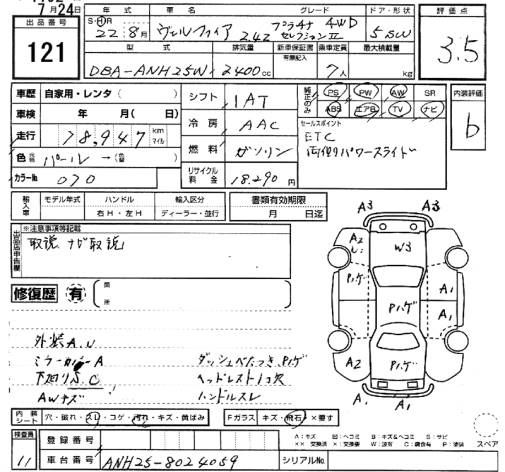 7月24日
出品番号
121
年式
車名
グレード
ドア・形状
S・H・R
22年8月
ヴェルファイア 2.4Z
プラチナ 4WD
セレクションII
5 SW
評価点
3.5
型式
排気量
新車保証書
有無記入
乗車定員
最大積載量
DBA-ANH25W
2400cc
7人
kg
車歴
自家用・レンタ( )
車検
年 月( )日
走行
78,947 km
マイル
色
パール→(色)
カラーNo
070
シフト
1AT
冷房
AAC
燃料
ガソリン
リサイクル料金
18,290円
純正のみ
PS PW AW SR
ABS エアB TV ナビ
セールスポイント
ETC
両側パワースライド
内装評価
b
輸入車
モデル年式
ハンドル
右H・左H
輸入区分
ディーラー・並行
書類有効期限
月 日迄
※注意事項等記載
出品店申告欄
取説 ナビ取説
修復歴 有
箇所
外装A.U
ミラーカバーA
下廻りS.C
AWキズ
ダッシュベたつき,Pハゲ
ヘッドレスト1コ欠
ハンドルスレ
A3 A3
A2
W3
Pハゲ
Pハゲ
A1
A1
A2
Pハゲ
A1
A1
内装シート
穴・破れ・スレ・コゲ・汚れ・キズ・黄ばみ
Fガラス
キズ・飛石・×要す
検査員
11
登録番号
車台番号
ANH25-8024059
シリアルNo.
A:キズ U:ヘコミ B:キズ&ヘコミ S:サビ
××:交換済 ×:要交換 W:波有 C:腐食有 P:塗装
スペア